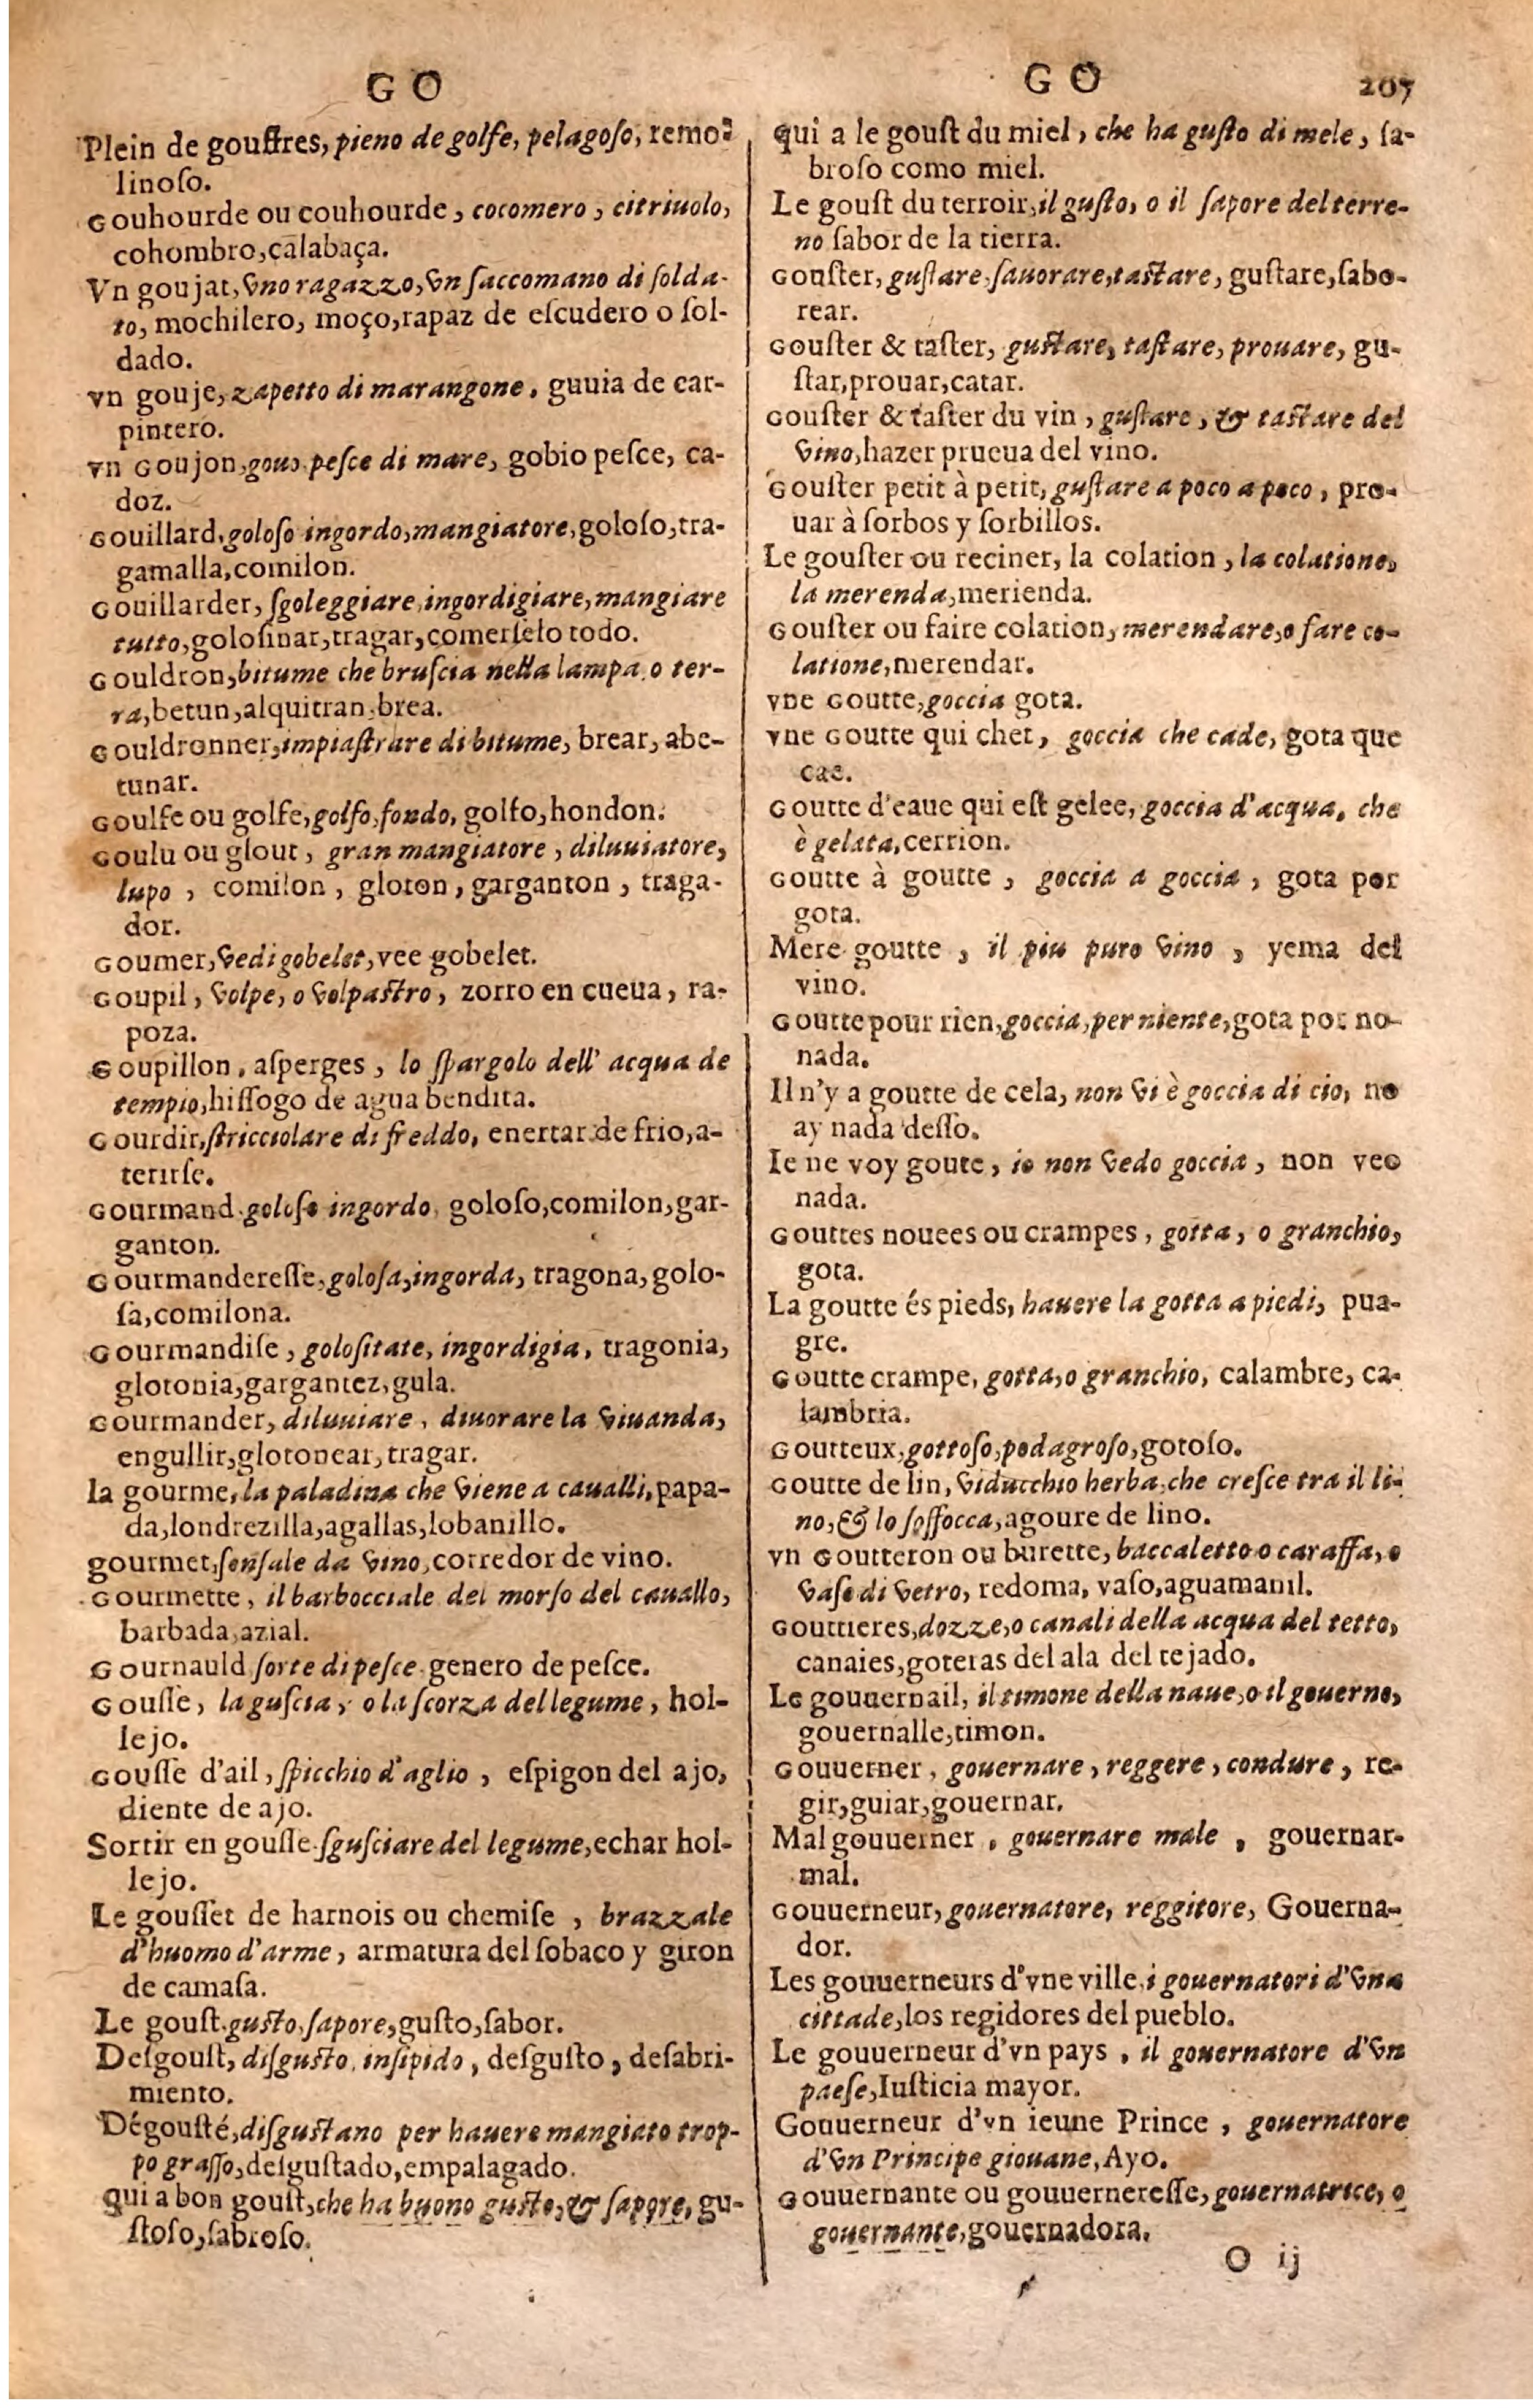 G O
Plein de gouffres, pieno de golfe, pelagoso, remo-
linoso.
Gouhourde ou couhourde, cocomero, citriuolo,
cohombro, calabaça.
Vn goujat, vno ragazzo, vn saccomano di solda-
to, mochilero, moço, rapaz de escudero o sol-
dado.
vn gouje, zapetto di marangone, guuia de car-
pintero.
vn Goujon, gouo pesce di mare, gobio pesce, ca-
doz.
Gouillard, goloso ingordo, mangiatore, goloso, tra-
gamalla, comilon.
Gouillarder, sgoleggiare, ingordigiare, mangiare
tutto, golosinar, tragar, comerselo todo.
Gouldron, bitume che bruscia nella lampa, o ter-
ra, betun, alquitran, brea.
Gouldronner, impiastrare di bitume, brear, abe-
tunar.
Goulfe ou golfe, golfo, fondo, golfo, hondon.
Goulu ou glout, gran mangiatore, diluuiatore,
lupo, comilon, gloton, garganton, traga-
dor.
Goumer, vedi gobelet, vee gobelet.
Goupil, volpe, o volpastro, zorro en cueua, ra-
poza.
Goupillon, asperges, lo spargolo dell' acqua de
tempio, hissogo de agua bendita.
Gourdir, stricciolare di freddo, enertar de frio, a-
terirse.
Gourmand, goloso ingordo, goloso, comilon, gar-
ganton.
Gourmanderesse, golosa, ingorda, tragona, golo-
sa, comilona.
Gourmandise, golositate, ingordigia, tragonia,
glotonia, gargantez, gula.
Gourmander, diluuiare, diuorare la viuanda,
engullir, glotonear, tragar.
la gourme, la paladina che viene a caualli, papa-
da, londrezilla, agallas, lobanillo.
gourmet, sensale da vino, corredor de vino.
Gourmette, il barbocciale del morso del cauallo,
barbada, azial.
Gournauld sorte di pesce genero de pesce.
Gousse, la guscia, o la scorza del legume, hol-
lejo.
Gousse d'ail, spicchio d'aglio, espigon del ajo,
diente de ajo.
Sortir en gousse sgusciare del legume, echar hol-
lejo.
Le gousset de harnois ou chemise, brazzale
d'huomo d'arme, armatura del sobaco y giron
de camasa.
Le goust gusto, sapore, gusto, sabor.
Desgoust, disgusto, insipido, desgusto, desabri-
miento.
Dégousté, disgustano per hauere mangiato trop-
po grasso, desgustado, empalagado.
qui a bon goust, che ha buono gusto, & sapore, gu-
stoso, sabroso.
G O 207
qui a le goust du miel, che ha gusto di mele, sa-
broso como miel.
Le goust du terroir, il gusto, o il sapore del terre-
no sabor de la tierra.
Gouster, gustare, sauorare, tastare, gustare, sabo-
rear.
Gouster & taster, gustare, tastare, prouare, gu-
star, prouar, catar.
Gouster & taster du vin, gustare, & tastare del
vino, hazer prueua del vino.
Gouster petit à petit, gustare a poco a poco, pro-
uar à sorbos y sorbillos.
Le gouster ou reciner, la colation, la colatione,
la merenda, merienda.
Gouster ou faire colation, merendare, o fare co-
latione, merendar.
vne Goutte, goccia gota.
vne Goutte qui chet, goccia che cade, gota que
cae.
Goutte d'eaue qui est gelee, goccia d'acqua, che
è gelata, cerrion.
Goutte à goutte, goccia a goccia, gota por
gota.
Mere goutte, il piu puro vino, yema del
vino.
Goutte pour rien, goccia, per niente, gota por no-
nada.
Il n'y a goutte de cela, non vi è goccia di cio, no
ay nada desso.
Ie ne voy goute, io non vedo goccia, non veo
nada.
Gouttes nouees ou crampes, gotta, o granchio,
gota.
La goutte és pieds, hauere la gotta a piedi, pua-
gre.
Goutte crampe, gotta, o granchio, calambre, ca-
lambria.
Goutteux, gottoso, podagroso, gotoso.
Goutte de lin, viducchio herba, che cresce tra il li-
no, & lo soffocca, agoure de lino.
vn Goutteron ou burette, baccaletto o caraffa, o
vase di vetro, redoma, vaso, aguamanil.
Gouttieres, dozze, o canali della acqua del tetto,
canaies, goteras del ala del tejado.
Le gouuernail, il timone della naue, o il gouerno,
gouernalle, timon.
Gouuerner, gouernare, reggere, condure, re-
gir, guiar, gouernar.
Mal gouuerner, gouernare male, gouernar-
mal.
Gouuerneur, gouernatore, reggitore, Gouerna-
dor.
Les gouuerneurs d'vne ville, i gouernatori d'vna
cittade, los regidores del pueblo.
Le gouuerneur d'vn pays, il gouernatore d'vn
paese, Iusticia mayor.
Gouuerneur d'vn ieune Prince, gouernatore
d'vn Principe giouane, Ayo.
Gouuernante ou gouuerneresse, gouernatrice, o
gouernante, gouernadora.
O ij